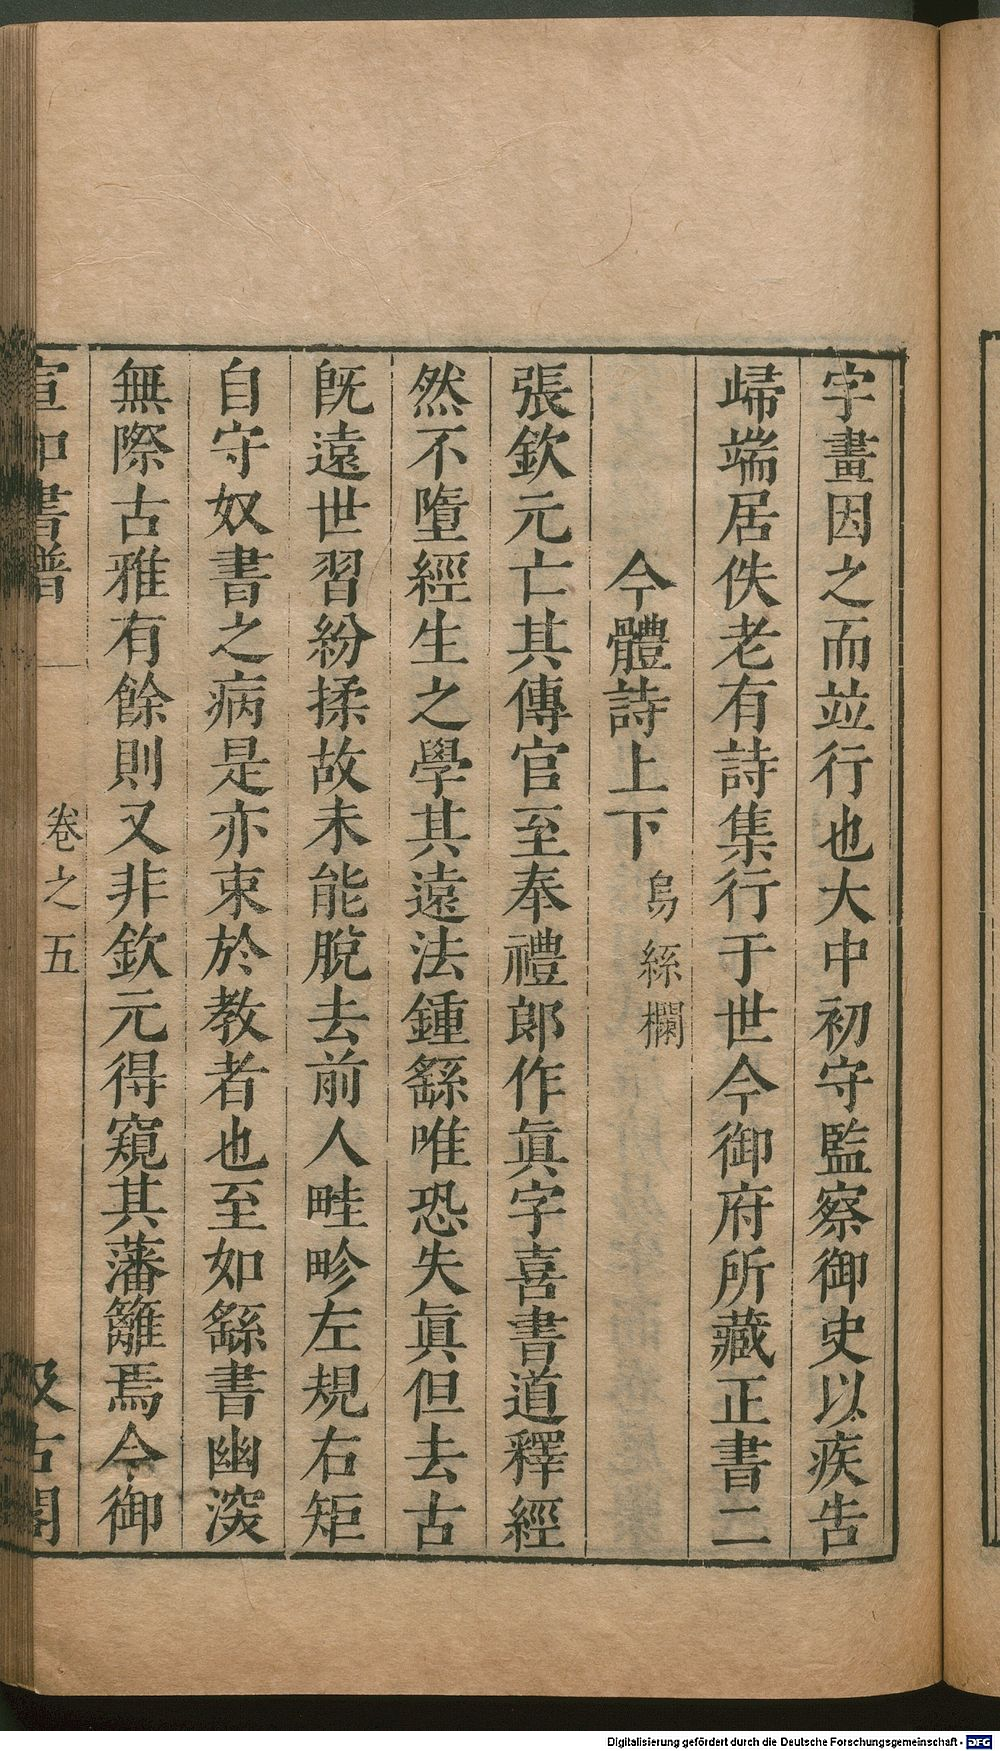 字畫因之而竝行也大中初守監察御史以疾告
歸端居佚老有詩集行于世今御府所藏正書二
今體詩上下烏絲欄
張欽元亡其傳官至奉禮郎作眞字喜書道釋經
然不墮經生之學其遠法鍾繇唯恐失眞但去古
旣遠世習紛揉故未能脫去前人畦畛左規右矩
自守奴書之病是亦束於教者也至如繇書幽深
無際古雅有餘則又非欽元得窺其藩籬焉今御
宣和書譜 卷之五 汲古閣
Digitalisierung gefördert durch die Deutsche Forschungsgemeinschaft - DFG